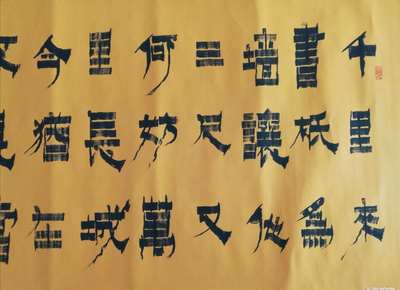 千里來
書祇為
墻讓他
三尺又
何妨萬
里長城
今猶在